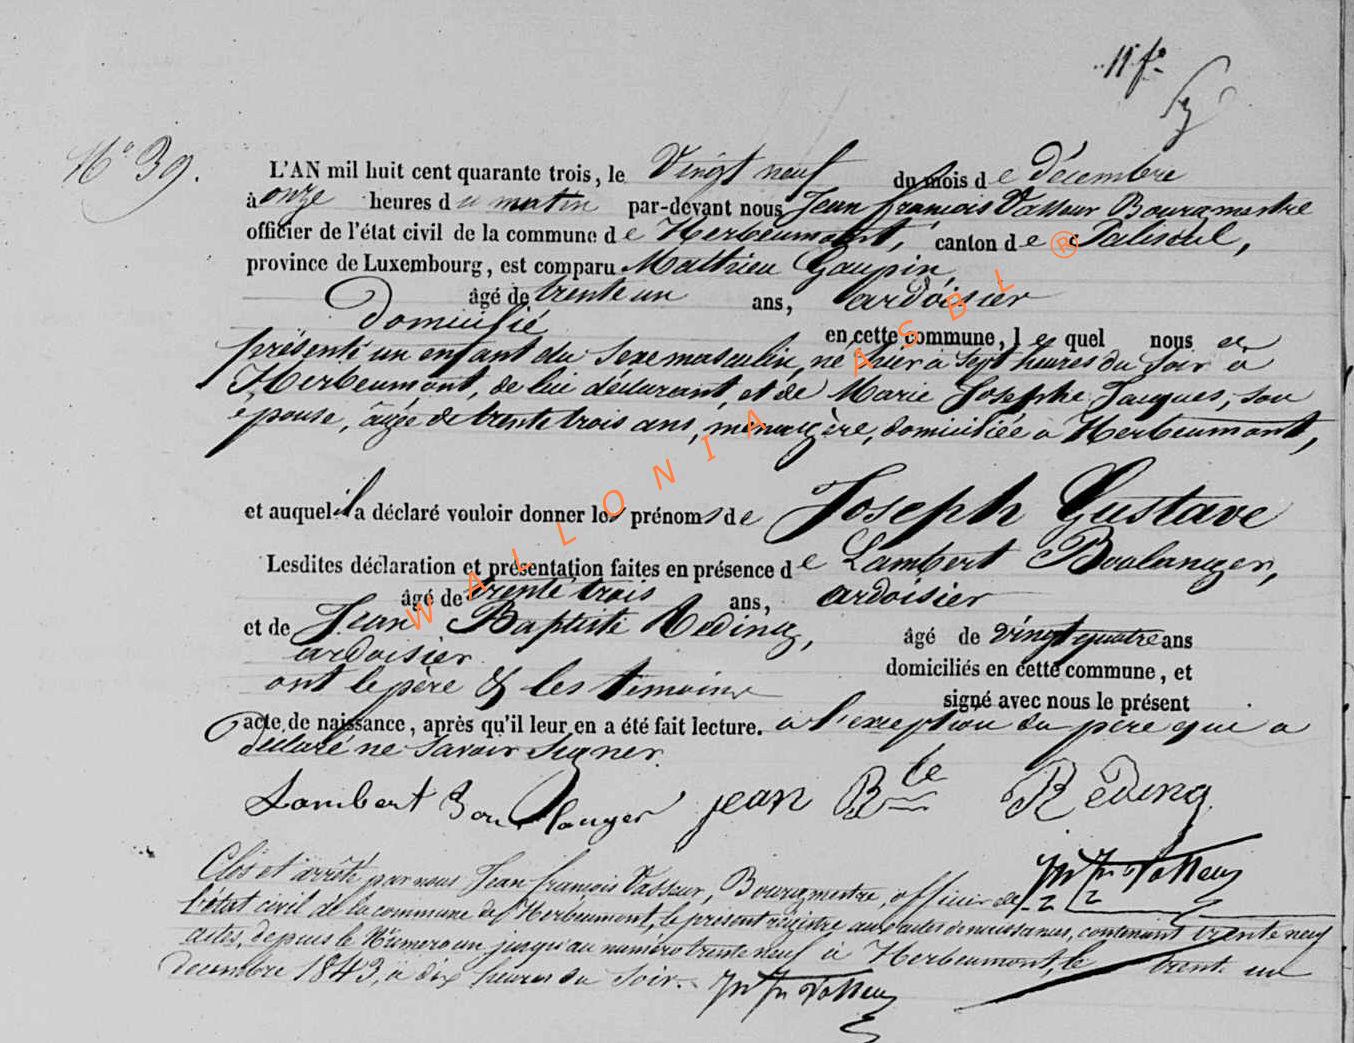 11 fo
No 39.
L'AN mil huit cent quarante trois, le Vingt neuf du mois de Décembre
à onze heures du matin par-devant nous Jean françois Vasseur Bourgmestre
officier de l'état civil de la commune de Herbeumont, canton de Paliseul,
province de Luxembourg, est comparu Mathieu Gaupin,
âgé de trente un ans, ardoisier
Domicilié en cette commune, lequel nous a
présenté un enfant du sexe masculin, né hier à sept heures du soir à
Herbeumont, de lui déclarant, et de Marie Josephe Jacques, son
épouse, âgée de trente trois ans, ménagère, domiciliée à Herbeumont,
et auquel il a déclaré vouloir donner les prénoms de Joseph Gustave
Lesdites déclaration et présentation faites en présence de Lambert Boulanger,
âgé de trente trois ans, ardoisier
et de Jean Baptiste Reding, âgé de vingt quatre ans
ardoisier domiciliés en cette commune, et
ont le père & les témoins signé avec nous le présent
acte de naissance, après qu'il leur en a été fait lecture. à l'exception du père qui a
Déclaré ne savoir signer.
Lambert Boulanger jean Bte Réding
Clos et arrêté par nous Jean françois Vasseur, Bourgmestre, officier de
l'état civil de la commune de Herbeumont, le présent registre aux actes de naissances, contenant trente neuf
actes, depuis le Numero un jusqu'au numéro trente neuf à Herbeumont, le trent un
Decembre 1843, à dix heures du soir.
WALLONIA ASBL ®